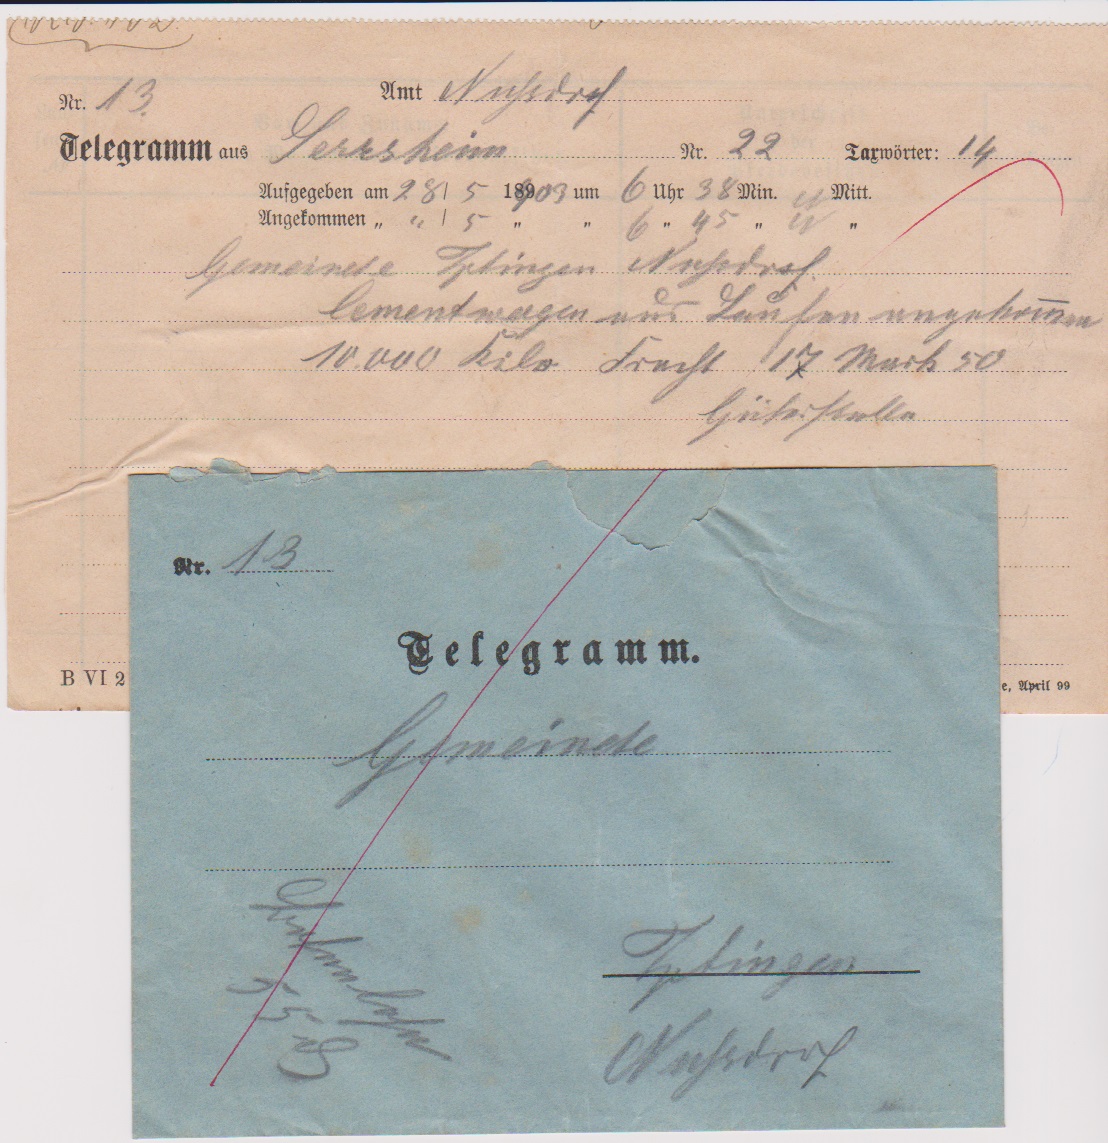 Nr. 13 Amt Nußdorf
Telegramm aus Sersheim Nr. 22 Taxwörter: 14
Aufgegeben am 28/5 1903 um 6 Uhr 38 Min. N Mitt.
Angekommen „ „ / 5 „ „ 6 „ 45 „ N „
Gemeinde Iptingen Nußdorf.
Cementwagen aus Laufen angekom̄en
10.000 Kilo Fracht 17 Mark 50
Güterstelle
B VI 2
e, April 99
Nr. 13
Telegramm.
Gemeinde
Iptingen
Nußdorf
Botenlohn
55 d